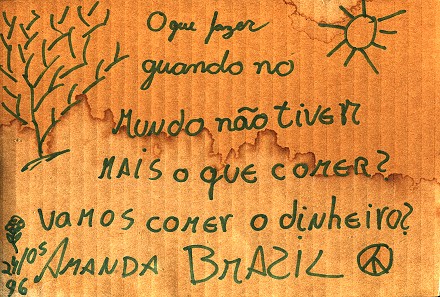 O que fazer
quando no
Mundo não tiver
MAIS o que comer?
Vamos comer o dinheiro?
10s AMANDA BRAZIL
96